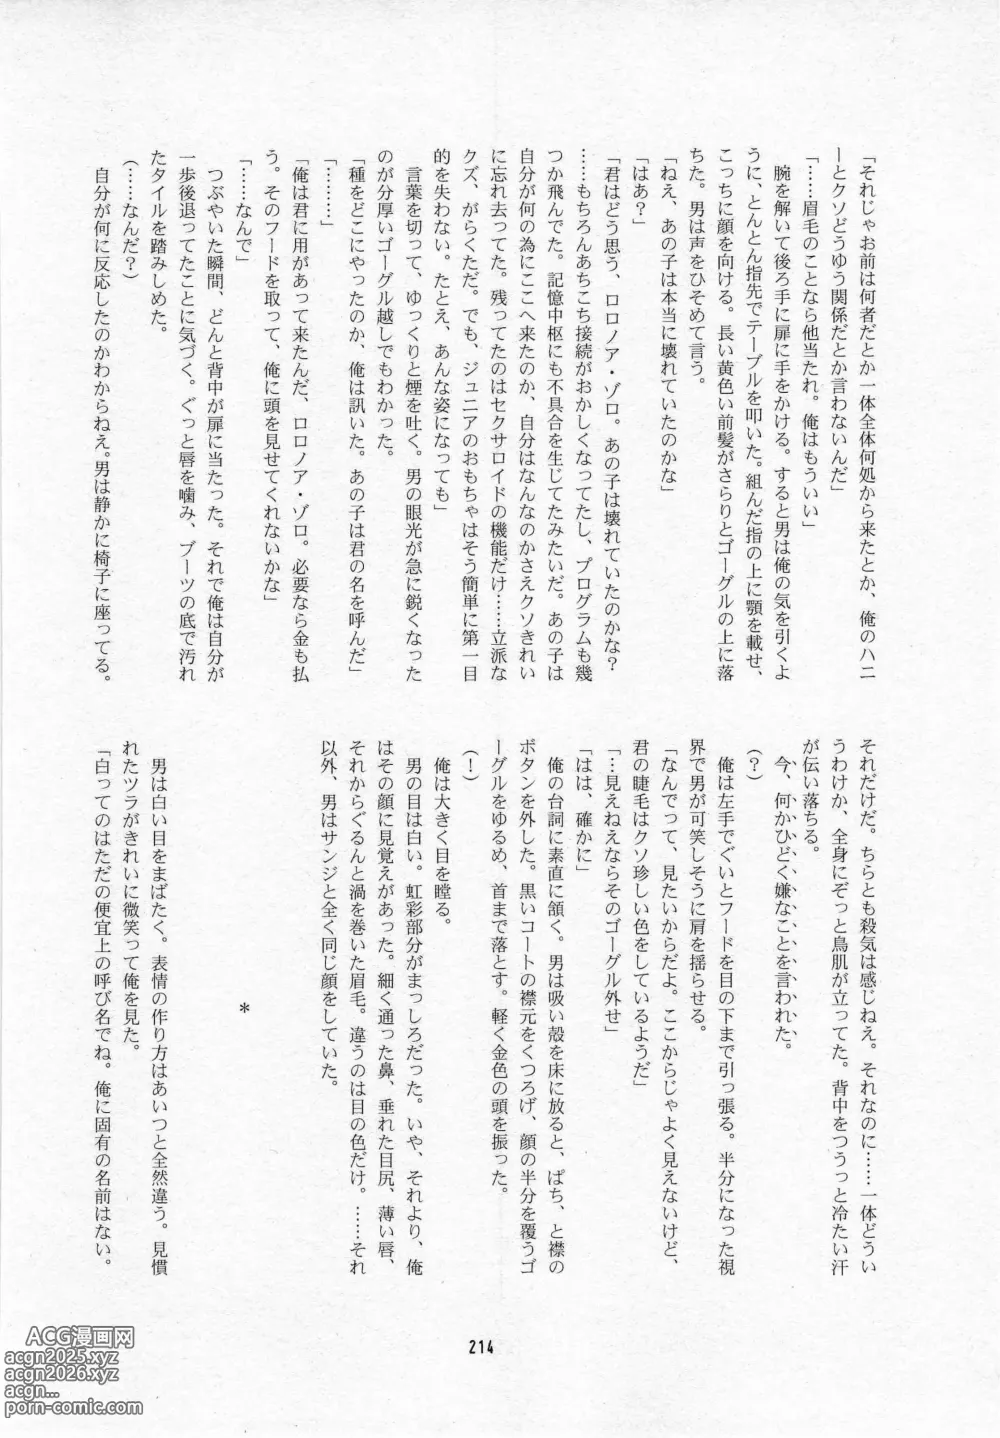 「それじゃお前は何者だとか一体全体何処から来たとか、俺のハニ
ーとクソどうゆう関係だとか言わないんだ」
「……眉毛のことなら他当たれ。俺はもういい」
　腕を解いて後ろ手に扉に手をかける。すると男は俺の気を引くよ
うに、とんとん指先でテーブルを叩いた。組んだ指の上に顎を載せ、
こっちに顔を向ける。長い黄色い前髪がさらりとゴーグルの上に落
ちた。男は声をひそめて言う。
「ねえ、あの子は本当に壊れていたのかな」
「はあ？」
「君はどう思う、ロロノア・ゾロ。あの子は壊れていたのかな？
……もちろんあちこち接続がおかしくなってたし、プログラムも幾
つか飛んでた。記憶中枢にも不具合を生じてたみたいだ。あの子は
自分が何の為にここへ来たのか、自分はなんなのかさえクソきれい
に忘れ去ってた。残ってたのはセクサロイドの機能だけ……立派な
クズ、がらくただ。でも、ジュニアのおもちゃはそう簡単に第一目
的を失わない。たとえ、あんな姿になっても」
　言葉を切って、ゆっくりと煙を吐く。男の眼光が急に鋭くなった
のが分厚いゴーグル越しでもわかった。
「種をどこにやったのか、俺は訊いた。あの子は君の名を呼んだ」
「………」
「俺は君に用があって来たんだ、ロロノア・ゾロ。必要なら金も払
う。そのフードを取って、俺に頭を見せてくれないかな」
「……なんで」
　つぶやいた瞬間、どんと背中が扉に当たった。それで俺は自分が
一歩後退ってたことに気づく。ぐっと唇を噛み、ブーツの底で汚れ
たタイルを踏みしめた。
（……なんだ？）
　自分が何に反応したのかわからねえ。男は静かに椅子に座ってる。
それだけだ。ちらとも殺気は感じねえ。それなのに……一体どうい
うわけか、全身にぞっと鳥肌が立ってた。背中をつうっと冷たい汗
が伝い落ちる。
　今、何かひどく嫌なことを言われた。
（？）
　俺は左手でぐいとフードを目の下まで引っ張る。半分になった視
界で男が可笑しそうに肩を揺らせる。
「なんでって、見たいからだよ。ここからじゃよく見えないけど、
君の睫毛はクソ珍しい色をしているようだ」
「…見えねえならそのゴーグル外せ」
「はは、確かに」
　俺の台詞に素直に頷く。男は吸い殻を床に放ると、ぱち、と襟の
ボタンを外した。黒いコートの襟元をくつろげ、顔の半分を覆うゴ
ーグルをゆるめ、首まで落とす。軽く金色の頭を振った。
（！）
　俺は大きく目を瞠る。
　男の目は白い。虹彩部分がまっしろだった。いや、それより、俺
はその顔に見覚えがあった。細く通った鼻、垂れた目尻、薄い唇、
それからぐるんと渦を巻いた眉毛。違うのは目の色だけ。……それ
以外、男はサンジと全く同じ顔をしていた。
＊
　男は白い目をまばたく。表情の作り方はあいつと全然違う。見慣
れたツラがきれいに微笑って俺を見た。
「白ってのはただの便宜上の呼び名でね。俺に固有の名前はない。
214
ACG漫画网
acgn2025.xyz
acgn2026.xyz
acgn...
porn-comic.com